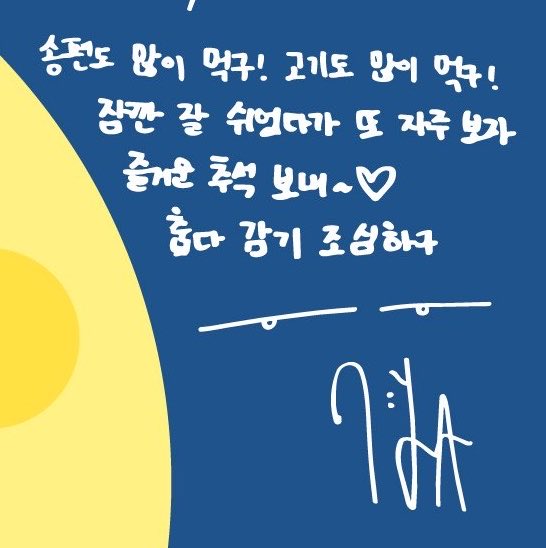 송편도 많이 먹구! 고기도 많이 먹구!
잠깐 잘 쉬었다가 또 자주 보자
즐거운 추석 보내~♡
춥다 감기 조심하구